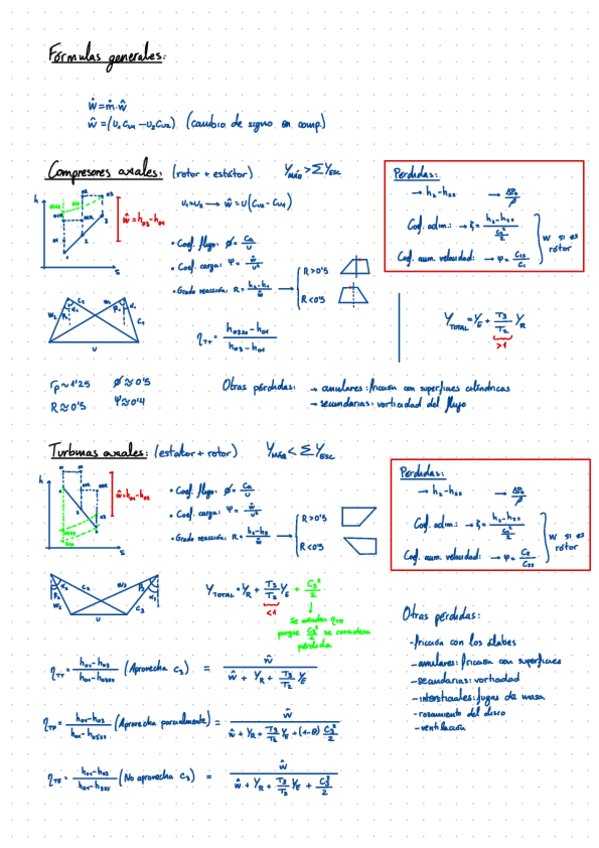 Fórmulas generales:
ẇ = ṁ·ŵ
ŵ = (U₁Cu₁ − U₂Cu₂) (cambio de signo en comp.)
Compresores axiales: (rotor + estátor) Y_MÁQ > ΣY_ESC
U₁=U₂ → ŵ = U(Cu₂ − Cu₁)
h
ŵ = h₀₃−h₀₁
s
• Coef. flujo: ø = Ca/U
• Coef. carga: Ψ = ŵ/U²
• Grado reacción: R = (h₂−h₁)/ŵ → R>0'5
R<0'5
Pérdidas:
→ h₂−h₂s → ΔP₀/ρ
Coef. adim.: → ξ = (h₂−h₂s)/(C₂²/2)
Coef. aum. velocidad: → φ = C₂s/C₂
w si es rótor
W₂ C₂ W₁ C₁
U
η_TT = (h₀₃ss − h₀₁)/(h₀₃ − h₀₁)
Y_TOTAL = Y_E + T₃/T₂ Y_R
>1
rp ~ 1'25 ø ≈ 0'5
R ≈ 0'5 Ψ ≈ 0'4
Otras pérdidas: → anulares: fricción con superficies cilíndricas
→ secundarias: vorticidad del flujo
Turbinas axiales: (estátor + rotor) Y_MÁQ < ΣY_ESC
h
ŵ = h₀₁−h₀₃
s
• Coef. flujo: ø = Ca/U
• Coef. carga: Ψ = ŵ/U²
• Grado reacción: R = (h₂−h₃)/ŵ → R>0'5
R<0'5
Pérdidas:
→ h₂−h₂s → ΔP₀/ρ
Coef. adim.: → ξ = (h₂−h₂s)/(C₂²/2)
Coef. aum. velocidad: → φ = C₂/C₂s
w si es rótor
W₂ C₂ W₃ C₃
U
Y_TOTAL = Y_R + T₃/T₂ Y_E + C₃²/2
<1
Se añaden
porque C₃²/2 se considera
pérdida
Otras pérdidas:
- fricción con los álabes
- anulares: fricción con superficies
- secundarias: vorticidad
- intersticiales: fugas de masa
- rozamiento del disco
- ventilación
η_TT = (h₀₁−h₀₃)/(h₀₁−h₀₃ss) (Aprovecha C₃) = ŵ/(ŵ + Y_R + T₃/T₂ Y_E)
η_TP = (h₀₁−h₀₃)/(h₀₁−h₀₃ss) (Aprovecha parcialmente) = ŵ/(ŵ + Y_R + T₃/T₂ Y_E + (1−θ) C₃²/2)
η_TE = (h₀₁−h₀₃)/(h₀₁−h₃ss) (No aprovecha C₃) = ŵ/(ŵ + Y_R + T₃/T₂ Y_E + C₃²/2)